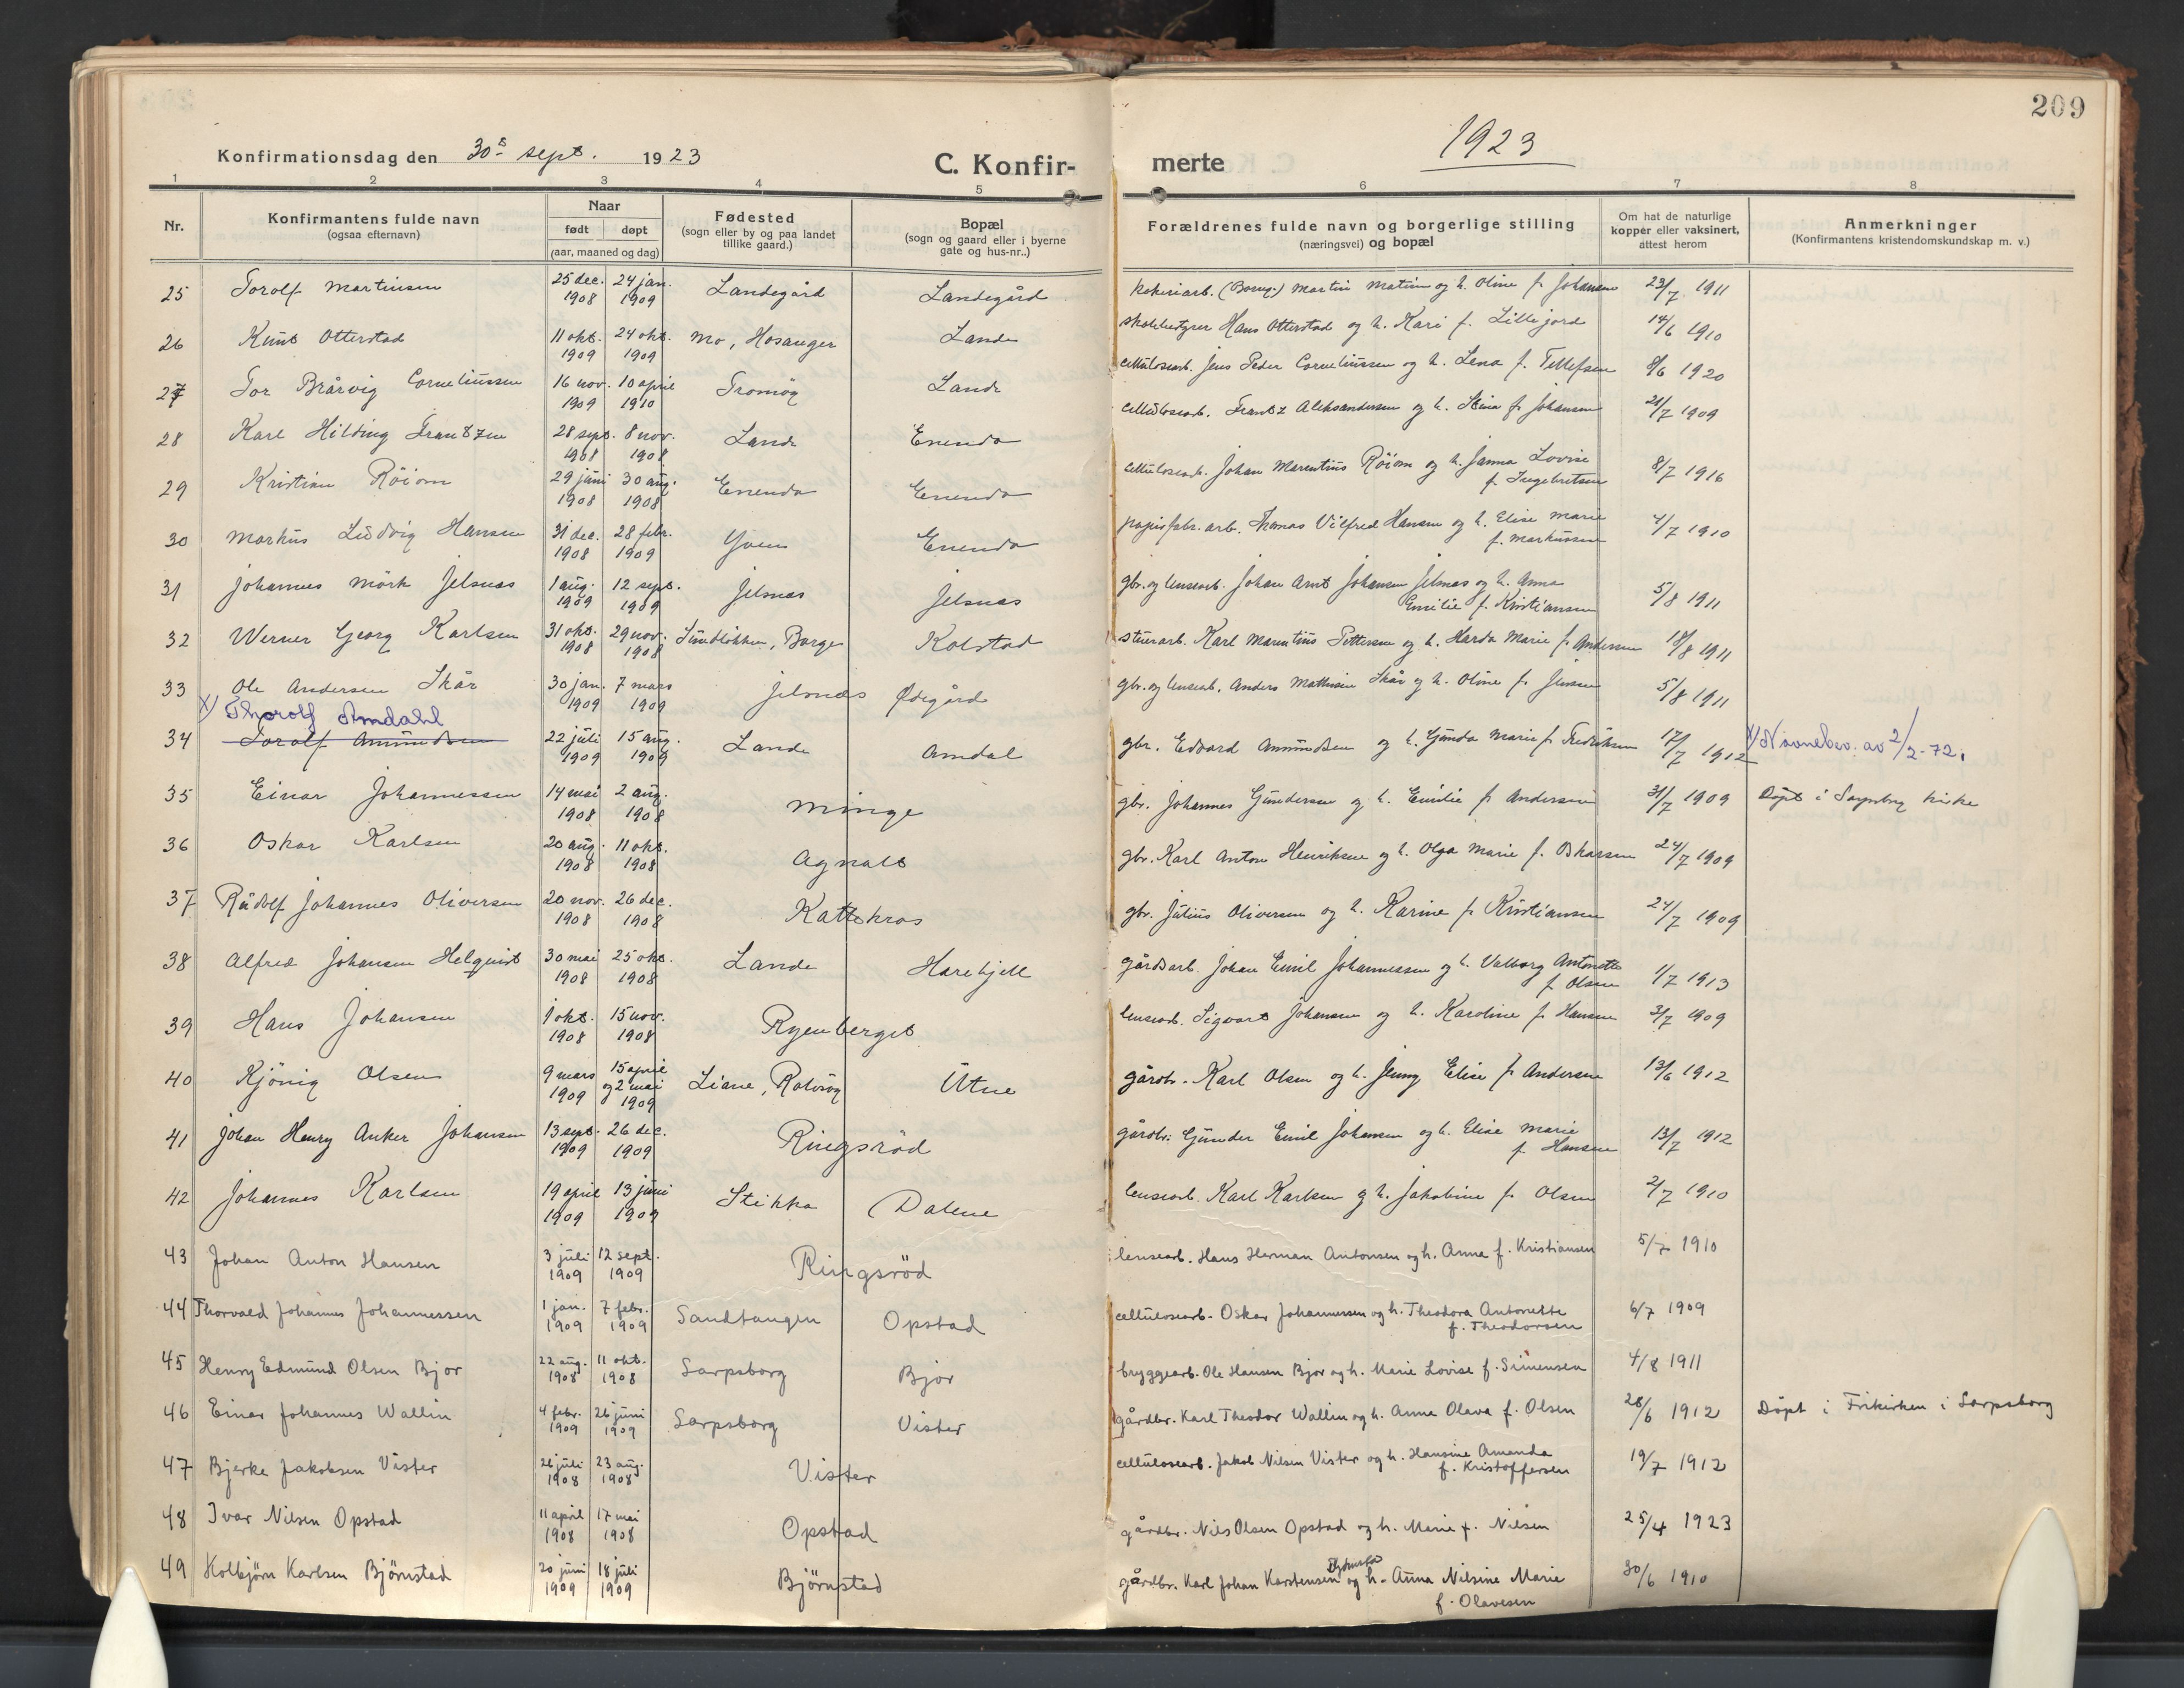 209
Konfirmationsdag den 30s sept. 1923 C. Konfir-
merte 1923
1 2 3 4 5 6 7 8
Nr. Konfirmantens fulde navn (ogsaa efternavn) Naar født døpt (aar, maaned og dag) Fødested (sogn eller by og paa landet tillike gaard.) Bopæl (sogn og gaard eller i byerne gate og hus-nr..) Forældrenes fulde navn og borgerlige stilling (næringsvei) og bopæl Om hat de naturlige kopper eller vaksinert, attest herom Anmerkninger (Konfirmantens kristendomskundskap m. v.)
25 Torolf Martinsen 25 dec. 1908 24 jan. 1909 Landegård Landegård Martin og h. Oline f. Johansen 23/7 1911
26 Knut Otterstad 11 okt. 1909 24 okt. 1909 Mo, Hosanger Lande skolebestyrer Hans Otterstad og h. Kari f. Lillejord 14/6 1910
27 Tor Brårvig Corneliussen 16 nov. 1909 10 april 1910 Tromöy Lande cellulosearb. Jens Peder Corneliussen og h. Lena f. Tellefsen 8/6 1920
28 Karl Hilding Frantzen 28 sept. 1908 8 nov. 1908 Lande Enenda cellulosearb. Frantz Aleksandersen og h. Stina f. Johansen 21/7 1909
29 Kristian Röiom 29 juni 1908 30 aug. 1908 Enenda Enenda cellulosearb. Johan Marentius Röiom og h. Janna Lovise
f. Ingebretsen 8/7 1916
30 Markus Ludvig Hansen 31 dec. 1908 28 febr. 1909 Yven Enenda papirfabr. arb. Thomas Vilfred Hansen og h. Elise Marie
f. Markussen 4/7 1910
31 Johannes Mörk Jelsnæs 1 aug. 1909 12 sept. 1909 Jelsnæs Jelsnæs gbr. og lensearb. Johan Arnt Johansen Jelsnæs og h. Anna
Emilie f. Kristiansen 5/8 1911
32 Werner Georg Karlsen 31 okt. 1908 29 nov. 1908 Sundlökken, Borge Kolstad stuerarb. Karl Marentius Pettersen og h. Harda Marie f. Andersen 18/8 1911
33 Ole Andersen Skår 30 jan. 1909 7 mars 1909 Jelsnæs Ødegård gbr. og lensearb. Anders Mathisen Skår og h. Oline f. Jensen 5/8 1911
x) Thorolf Amdahl
34 Torolf Amundsen 22 juli 1909 15 aug. 1909 Lande Amdal gbr. Edvard Amundsen og h. Gunda Marie f. Fredriksen 17/7 1912 x) Navnebev. av 2/2-72.
35 Einar Johannessen 14 mai 1908 2 aug. 1908 Minge gbr. Johannes Gundersen og h. Emilie f. Andersen 31/7 1909 Döpt i Sarpsborg kirke
36 Oskar Karlsen 20 aug. 1908 11 okt. 1908 Agnalt gbr. Karl Anton Henriksen og h. Olga Marie f. Oskarsen 24/7 1909
37 Rudolf Johannes Oliversen 20 nov. 1908 26 dec. 1908 Kattekras gbr. Julius Oliversen og h. Karine f. Kristiansen 24/7 1909
38 Alfred Johansen Helquist 30 mai 1908 25 okt. 1908 Lande Harehjell gårdsarb. Johan Emil Johannessen og h. Valborg Antonette
f. Olsen 1/7 1913
39 Hans Johansen 1 okt. 1908 15 nov. 1908 Ryenberget lensearb. Sigvart Johansen og h. Karoline f. Hansen 3/7 1909
40 Kjönig Olsen 9 mars 1909 15 april og 2 mai 1909 Liane, Rolvsøy Utne gårdbr. Karl Olsen og h. Jenny Elise f. Andersen 13/6 1912
41 Johan Henry Anker Johansen 13 sept. 1909 26 dec. 1909 Ringsröd gårdbr. Gunder Emil Johansen og h. Elise Marie
f. Hansen 13/7 1912
42 Johannes Karlsen 19 april 1909 13 juni 1909 Stikka Dalene lensearb. Karl Karlsen og h. Jakobine f. Olsen 2/7 1910
43 Johan Anton Hansen 3 juli 1909 12 sept. 1909 Ringsröd lensearb. Hans Herman Antonsen og h. Anna f. Kristiansen 5/7 1910
44 Thorvald Johannes Johannessen 1 jan. 1909 7 febr. 1909 Sandtangen Opstad cellulosearb. Oskar Johannessen og h. Theodora Antonette
f. Theodorsen 6/7 1909
45 Henry Edmund Olsen Bjor 22 aug. 1908 11 okt. 1908 Sarpsborg Bjor bryggearb. Ole Hansen Bjor og h. Marie Lovise f. Simensen 4/8 1911
46 Einar Johannes Wallin 4 febr. 1909 26 juni 1909 Sarpsborg Vister gårdbr. Karl Theodor Wallin og h. Anna Olava f. Olsen 28/6 1912 Döpt i Frikirken i Sarpsborg
47 Bjerke Jakobsen Vister 26 juli 1908 23 aug. 1908 Vister cellulosearb. Jakob Nilsen Vister og h. Hansine Amanda
f. Kristoffersen 19/7 1912
48 Ivar Nilsen Opstad 11 april 1908 17 mai 1908 Opstad gårdbr. Nils Olsen Opstad og h. Marie f. Nilsen 25/4 1923
49 Kolbjörn Karlsen Björnstad 20 juni 1909 18 juli 1909 Björnstad gårdbr. Karl Johan Karstensen Björnstad og h. Anna Nilsine Marie
f. Olavesen 30/6 1910